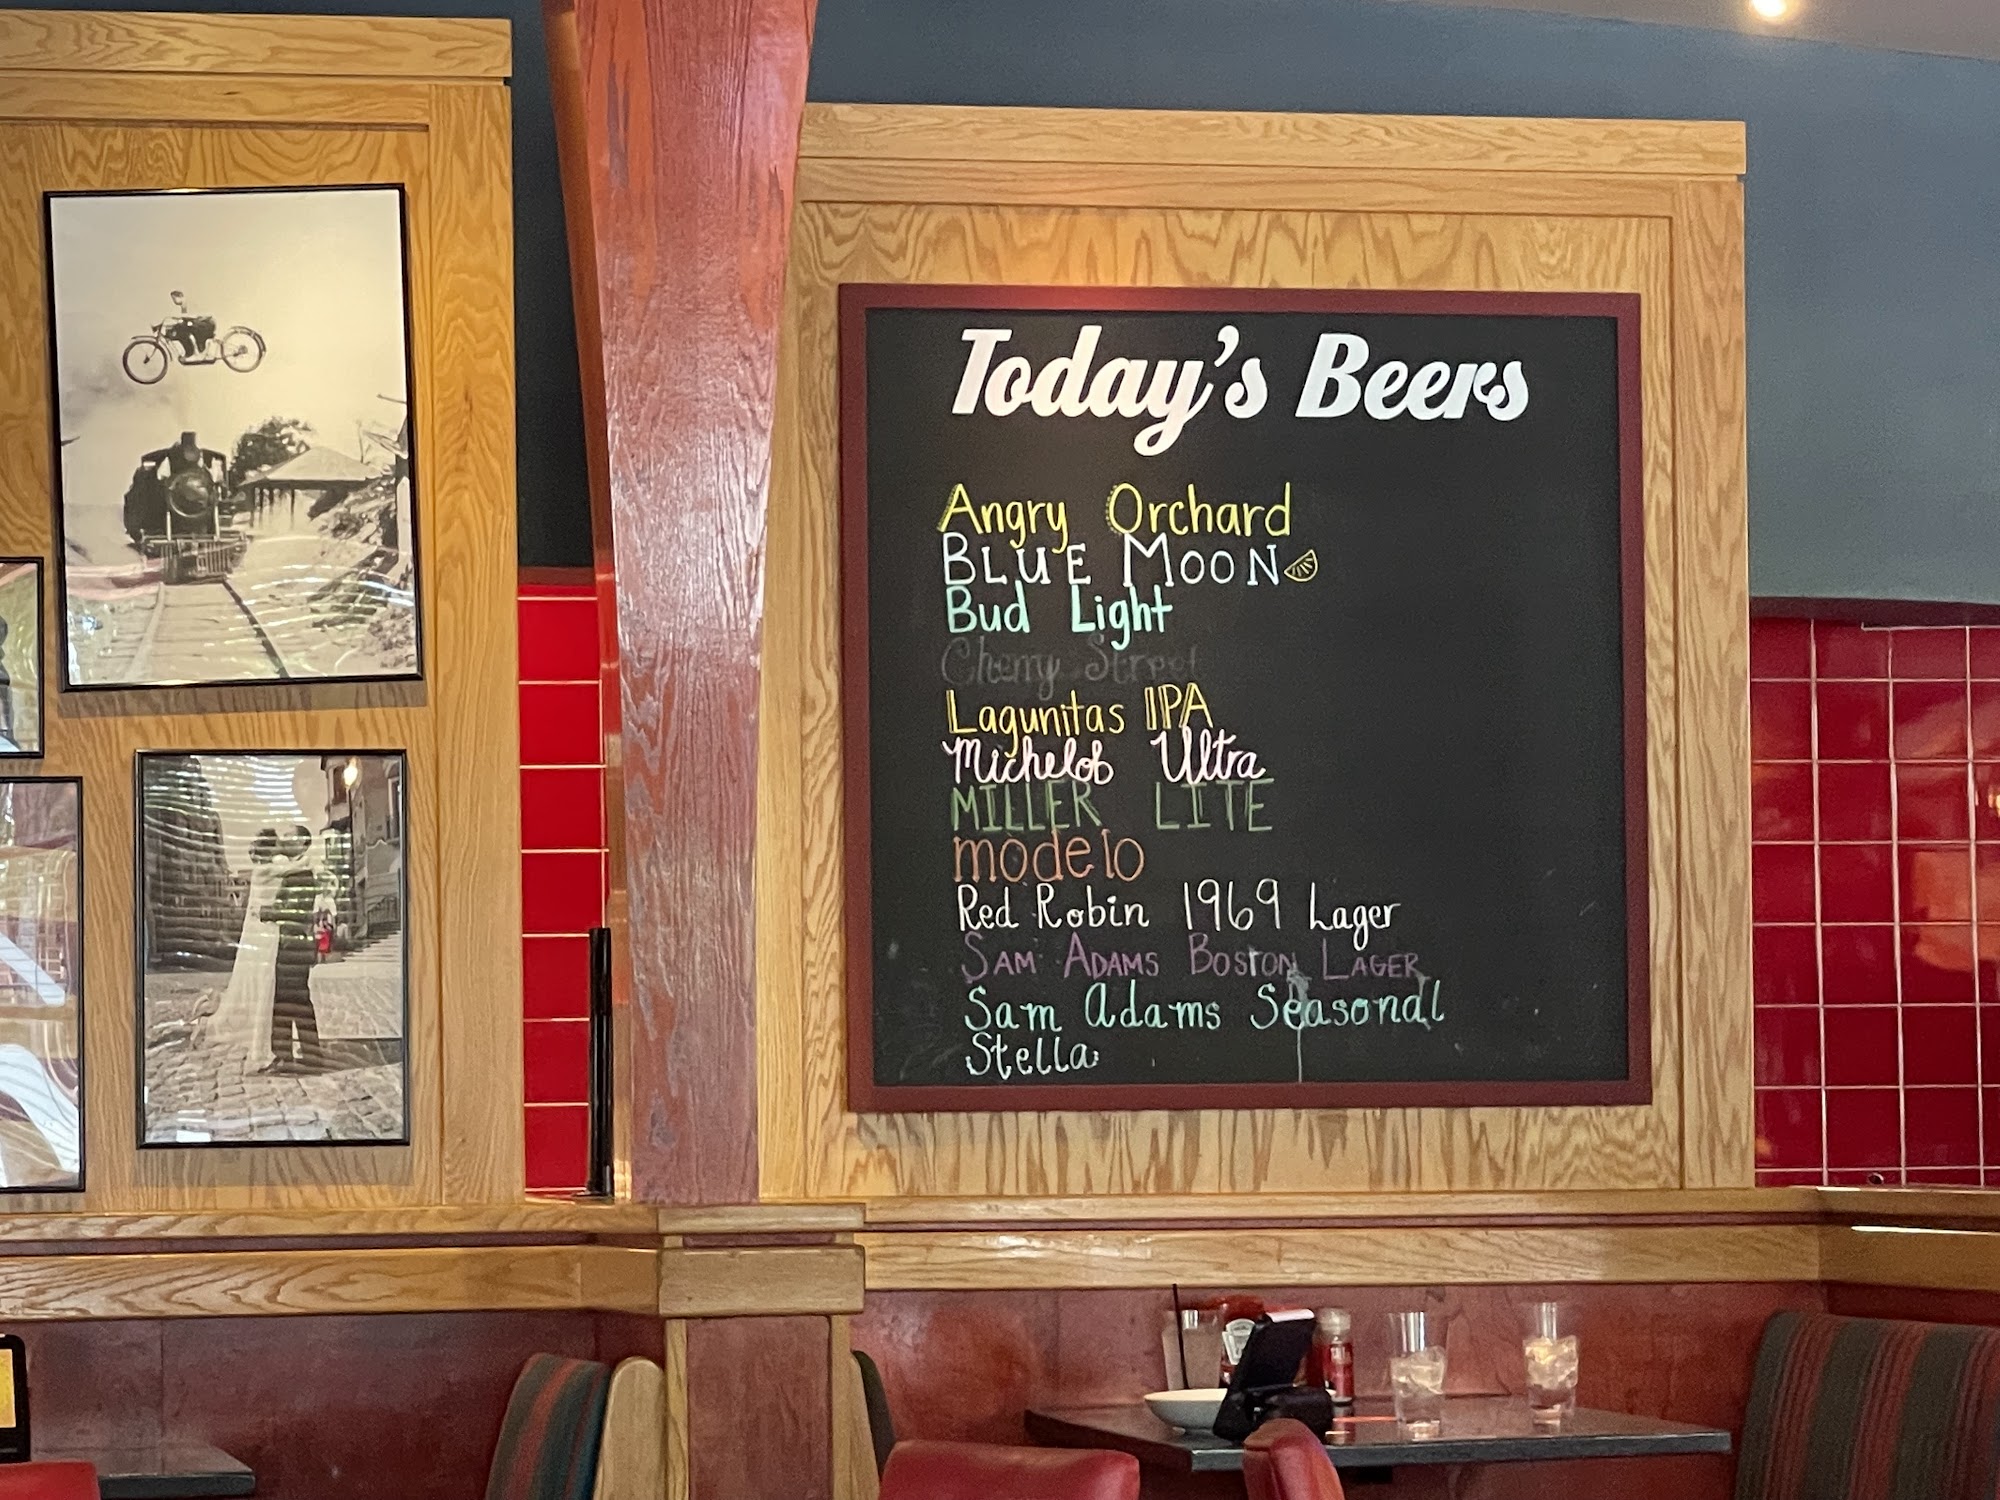 Today's Beers
Angry Orchard
BLUE MOON
Bud Light
Cherry Street
Lagunitas IPA
Michelob Ultra
MILLER LITE
modelo
Red Robin 1969 Lager
SAM ADAMS BOSTON LAGER
Sam Adams Seasonal
Stella